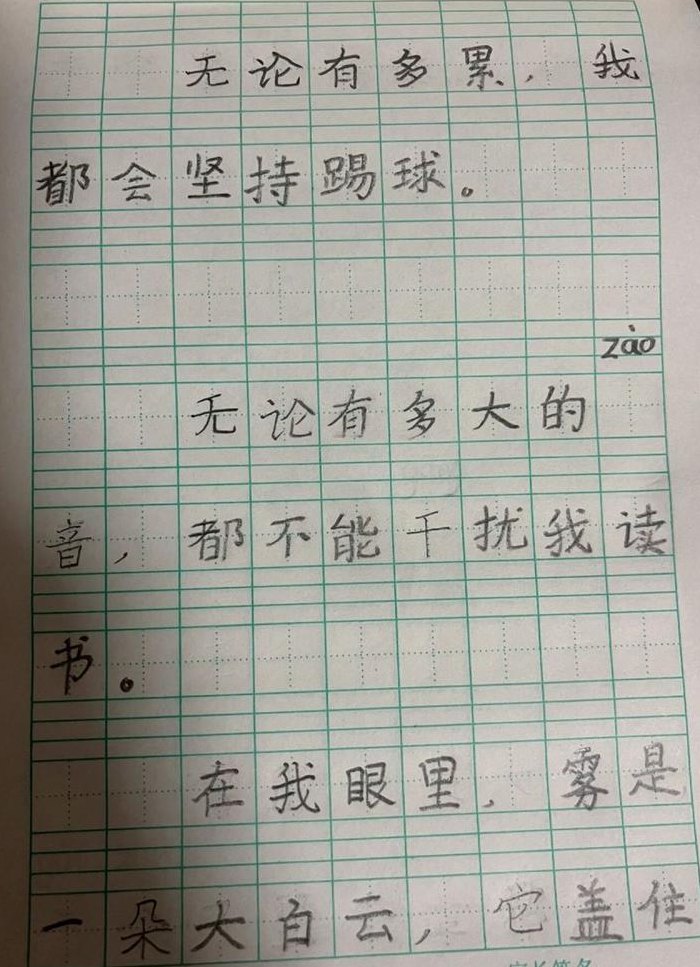 无论有多累，我
都会坚持踢球。
zào
无论有多大的
音，都不能干扰我读
书。
在我眼里，雾是
一朵大白云，它盖住